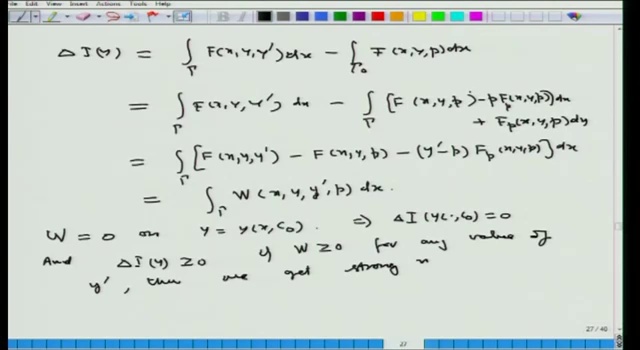 File Edit View Insert Actions Tools Help
Δ I(y) = ∫_Γ F(x, y, y') dx − ∫_Γ₀ F(x, y, p) dx
= ∫_Γ F(x, y, y') dx − ∫_Γ [F(x, y, p) − p F_p(x, y, p)] dx
+ F_p(x, y, p) dy
= ∫_Γ [F(x, y, y') − F(x, y, p) − (y' − p) F_p(x, y, p)] dx
= ∫_Γ W(x, y, y', p) dx.
W = 0 on y = y(x, C₀) . ⇒ Δ I(y(·, C₀) = 0
And Δ I(y) ≥ 0 if W ≥ 0 for any value of
y', then we get strong
27 / 40
27